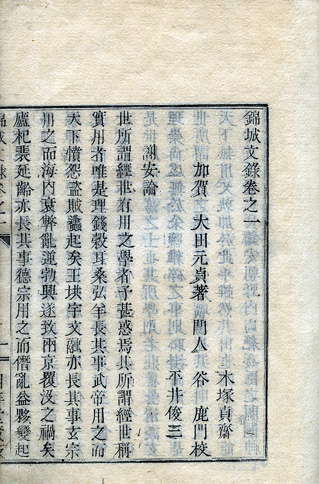 錦城文錄卷之一
木塚貞齋
加賀 大田元貞著 門人 谷 鹿門校
平井俊三
謝安論
世所謂經世有用之學者予甚惑焉其所謂經世稱
實用者唯是理錢穀耳桑弘羊長其事武帝用之而
天下憤怨盜賊蠭起矣王珙宇文融亦長其事玄宗
用之而海内衰弊亂運勃興遂致兩京覆没之禍矣
盧杞裴延齡亦長其事德宗用之而僭亂益夥變起